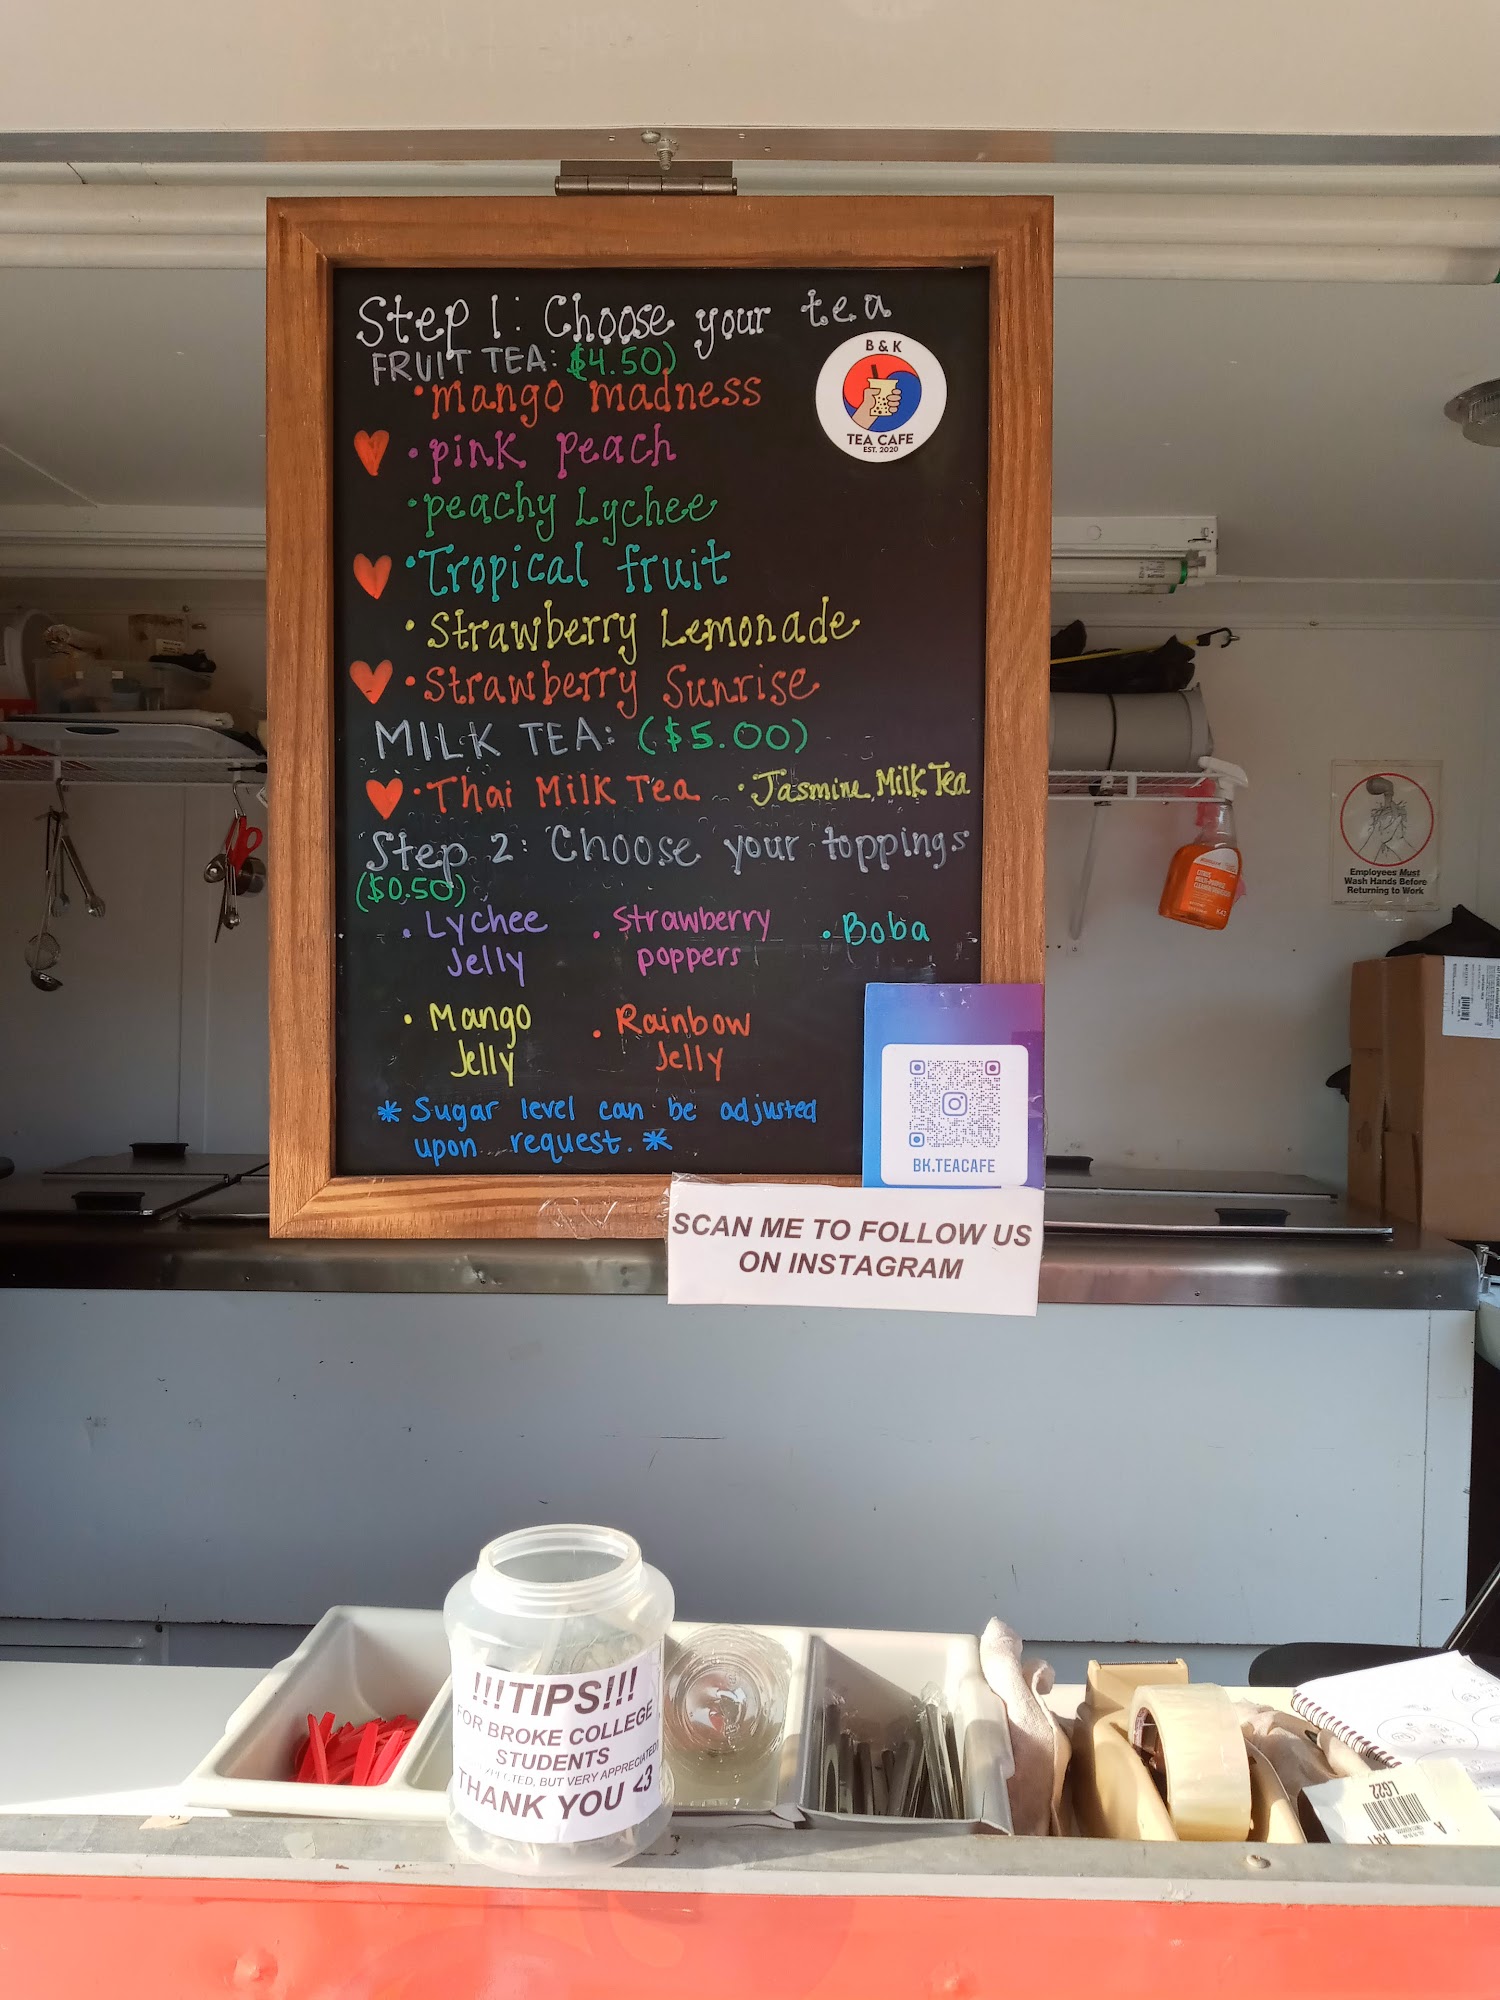 Step 1: Choose your tea
FRUIT TEA: ($4.50)
• mango madness
• pink peach
• peachy Lychee
• Tropical fruit
• Strawberry Lemonade
• Strawberry Sunrise
MILK TEA: ($5.00)
• Thai Milk Tea • Jasmine Milk Tea
Step 2: Choose your toppings
($0.50)
• Lychee Jelly
• Strawberry poppers
• Boba
• Mango Jelly
• Rainbow Jelly
* Sugar level can be adjusted
upon request. *
B & K
TEA CAFE
EST. 2020
BK.TEACAFE
SCAN ME TO FOLLOW US
ON INSTAGRAM
Employees Must
Wash Hands Before
Returning to Work
!!!TIPS!!!
FOR BROKE COLLEGE
STUDENTS
BUT VERY APPRECIATED!
THANK YOU <3
LG22
A